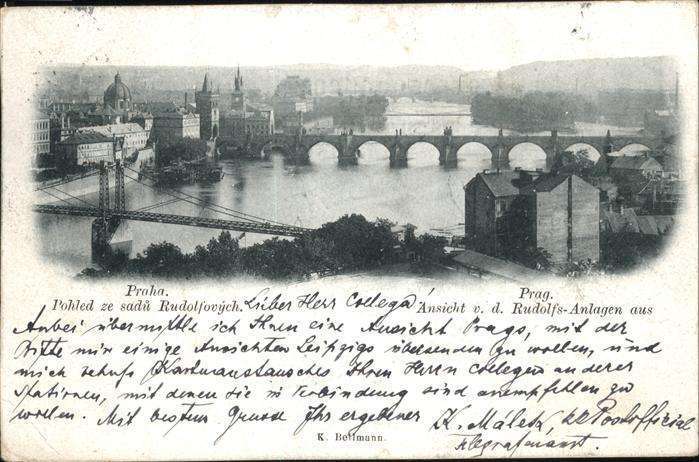 Praha.
Pohled ze sadů Rudolfových.
Prag.
Ansicht v. d. Rudolfs-Anlagen aus
Lieber Herr Collega!
Anbei übermittle ich Ihnen eine Ansicht Prags, mit der
Bitte mir einige Ansichten Leipzigs übersenden zu wollen, und
mich behufs Kartenaustausches Ihren Herrn Collegen anderer
Stationen, mit denen sie in Verbindung sind anempfehlen zu
wollen. Mit bestem Grusse Ihr ergebener K. Málek, k.k. Postofficial
Telegrafenamt.
K. Bellmann.